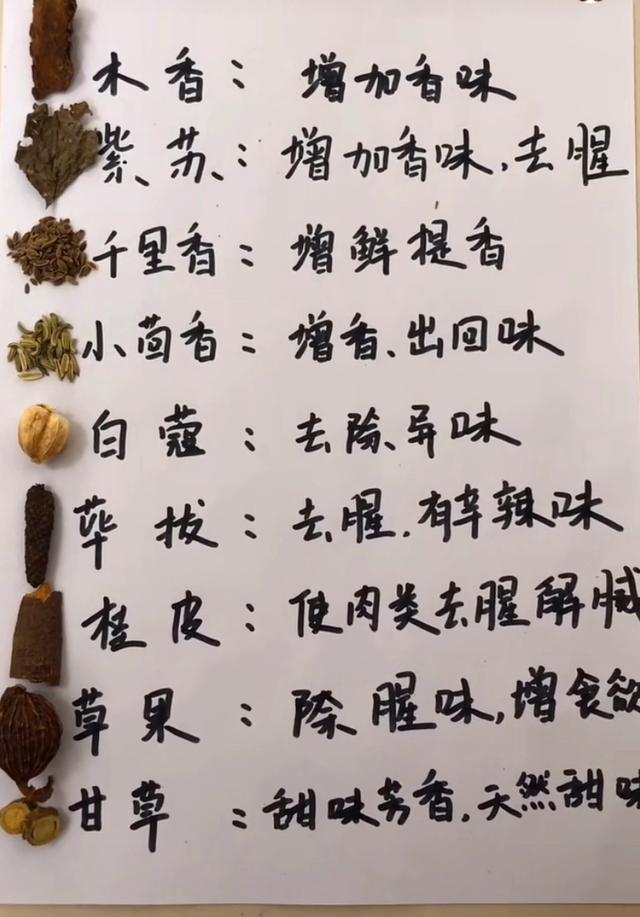 木香：增加香味
紫苏：增加香味，去腥
千里香：增鲜提香
小茴香：增香、出回味
白蔻：去除异味
荜拔：去腥，有辛辣味
桂皮：使肉类去腥解腻
草果：除腥味，增食欲
甘草：甜味芳香，天然甜味